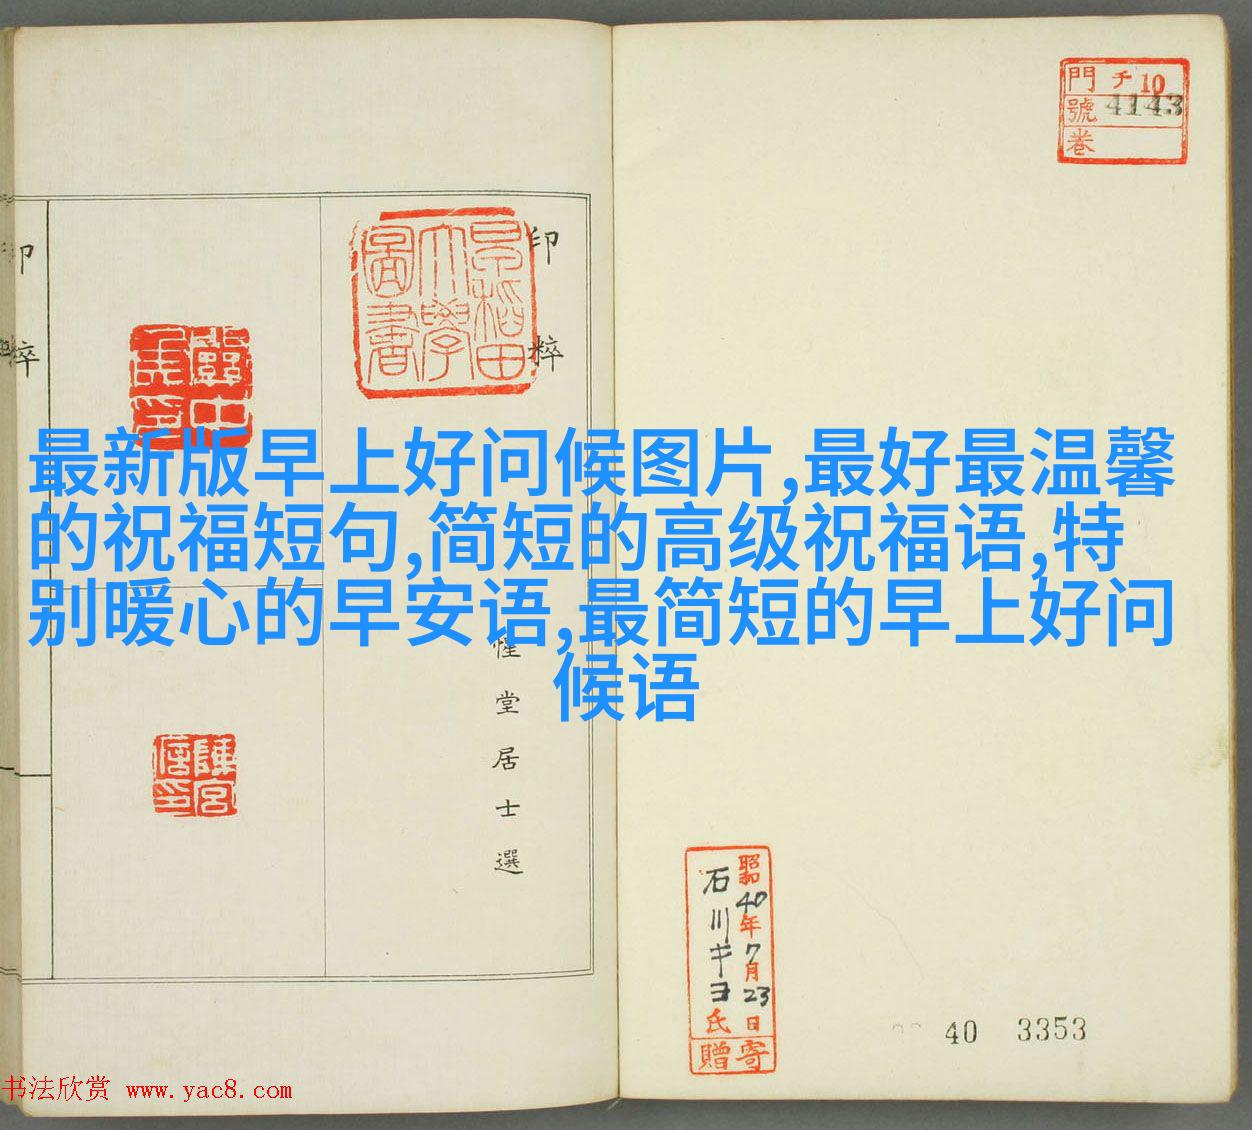 門 チ 10
號 4143
卷
早稲田大學圖書
印粹
印粹
最新版早上好问候图片,最好最温馨
的祝福短句,简短的高级祝福语,特
别暖心的早安语,最简短的早上好问
候语
惺堂居士選
陳宮信印
昭和40年7月23日
石川キヨ氏
寄贈
40 3353
书法欣赏 www.yac8.com